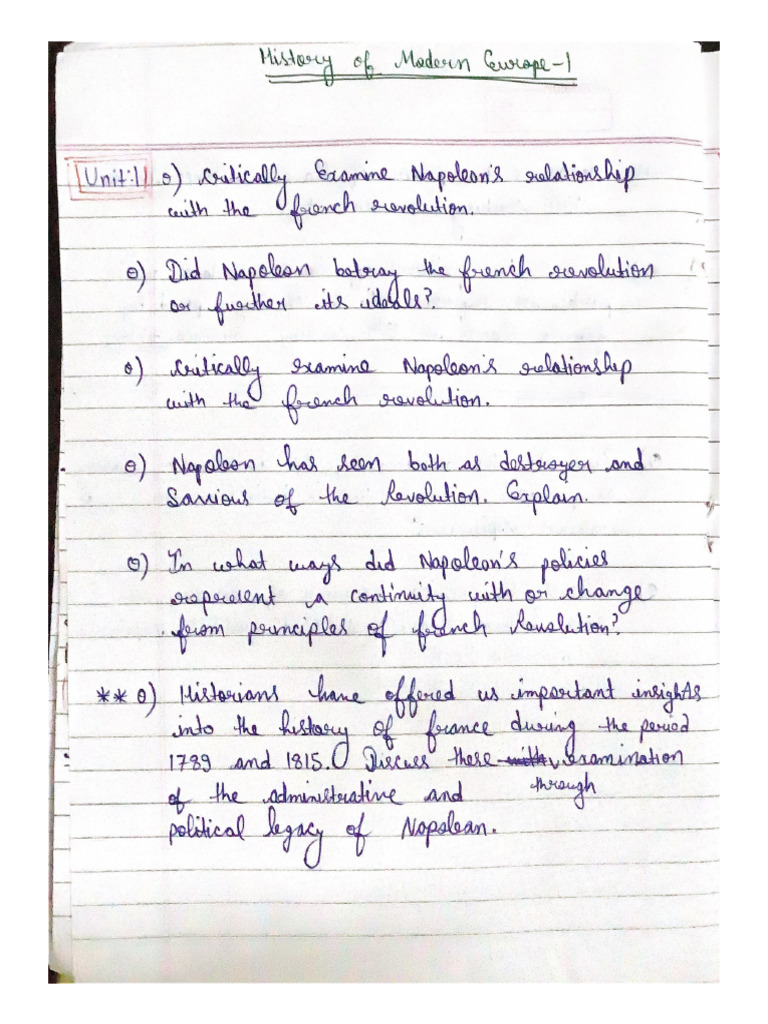 History of Modern Europe-1
Unit:1 Q) Critically Examine Napoleon's relationship
with the french revolution.
Q) Did Napoleon betray the french revolution
or further its ideals?
Q) Critically examine Napoleon's relationship
with the french revolution.
Q) Napoleon has seen both as destroyer and
Saviour of the Revolution. Explain.
Q) In what ways did Napoleon's policies
represent a continuity with or change
from principles of french Revolution?
** Q) Historians have offered us important insights
into the history of france during the period
1789 and 1815. Discuss these examination
through
of the administrative and
political legacy of Napolean.